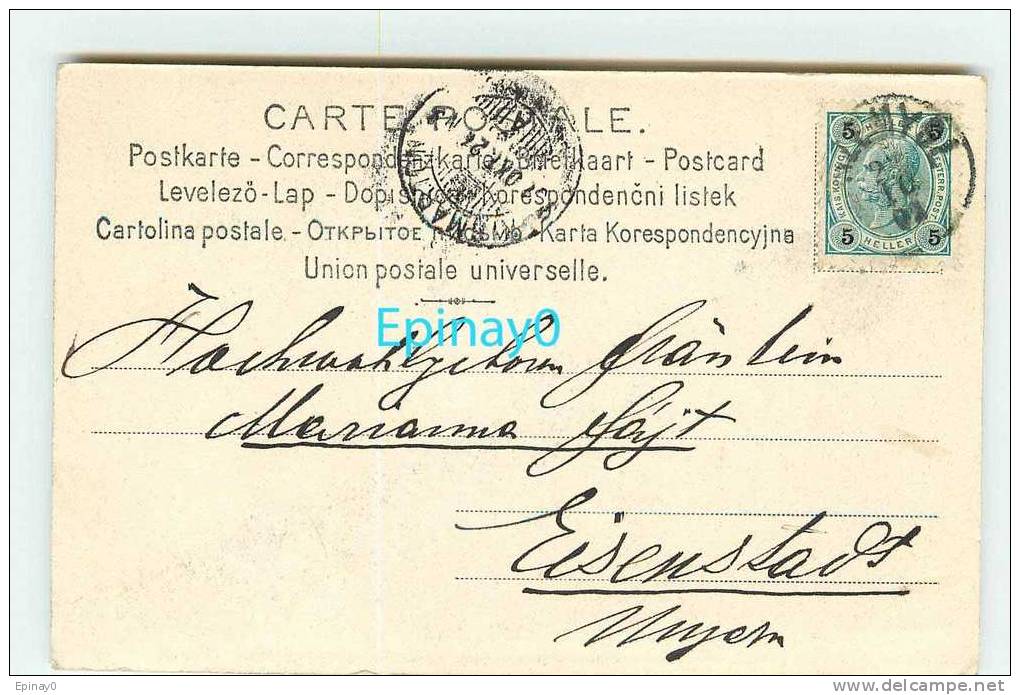 CARTE POSTALE.
Postkarte - Correspondenzkarte - Briefkaart - Postcard
Levelezö-Lap - Dopisnice - Korespondenční listek
Cartolina postale. - Открытое письмо - Karta Korespondencyjna
Union postale universelle.
5 HELLER 5
5 HELLER 5
Epinay0
Hochwohlgeborn Fräulein
Marianna
Eisenstadt
Ungarn
Epinay0
www.delcampe.net